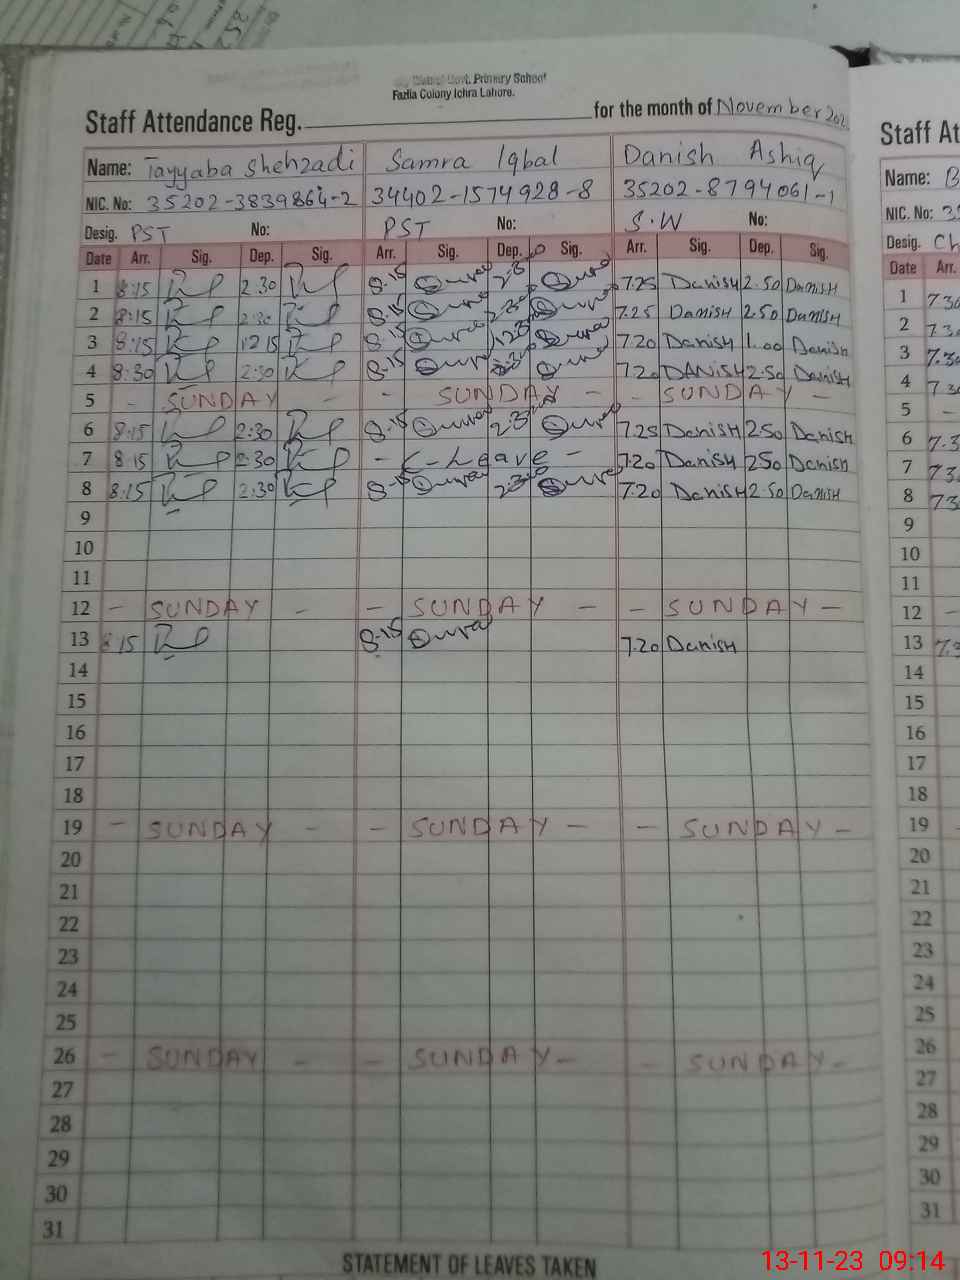 District Govt. Primary School
Fazlia Colony Ichra Lahore.
Staff Attendance Reg. for the month of November 202
Staff At
Name: Tayyaba Shehzadi Samra Iqbal Danish Ashiq
Name: B
NIC. No: 35202-3839864-2 34402-1574928-8 35202-8794061-1
NIC. No: 3
Desig. PST No: PST No: S.W No:
Desig. Ch
Date Arr. Sig. Dep. Sig. Arr. Sig. Dep. Sig. Arr. Sig. Dep. Sig.
Date Arr.
1 8:15 2:30 8.15 2:30 7.25 Danish 2.50 Danish 1 730
2 8:15 2:30 8.15 2:30 7.25 Danish 2.50 Danish 2 730
3 8:15 12 15 8.15 12:30 7.20 Danish 1.00 Danish 3 7.30
4 8:30 2:30 8.15 2:30 7.20 DANISH 2.50 Danish 4 730
5 - SUNDAY - - SUNDAY - - SUNDAY - 5 -
6 8:15 2:30 8.15 2:30 7.25 Danish 250 Danish 6 7.3
7 8:15 2:30 - C-Leave - 7.20 Danish 250 Danish 7 73
8 8:15 2:30 8.15 2:30 7.20 Danish 2.50 Danish 8 73
9 9
10 10
11 11
12 - SUNDAY - - SUNDAY - - SUNDAY - 12 -
13 8:15 8.15 7.20 Danish 13 7.3
14 14
15 15
16 16
17 17
18 18
19 - SUNDAY - - SUNDAY - - SUNDAY - 19 -
20 20
21 21
22 22
23 23
24 24
25 25
26 - SUNDAY - - SUNDAY - - SUNDAY - 26
27 27
28 28
29 29
30 30
31 31
STATEMENT OF LEAVES TAKEN
13-11-23 09:14